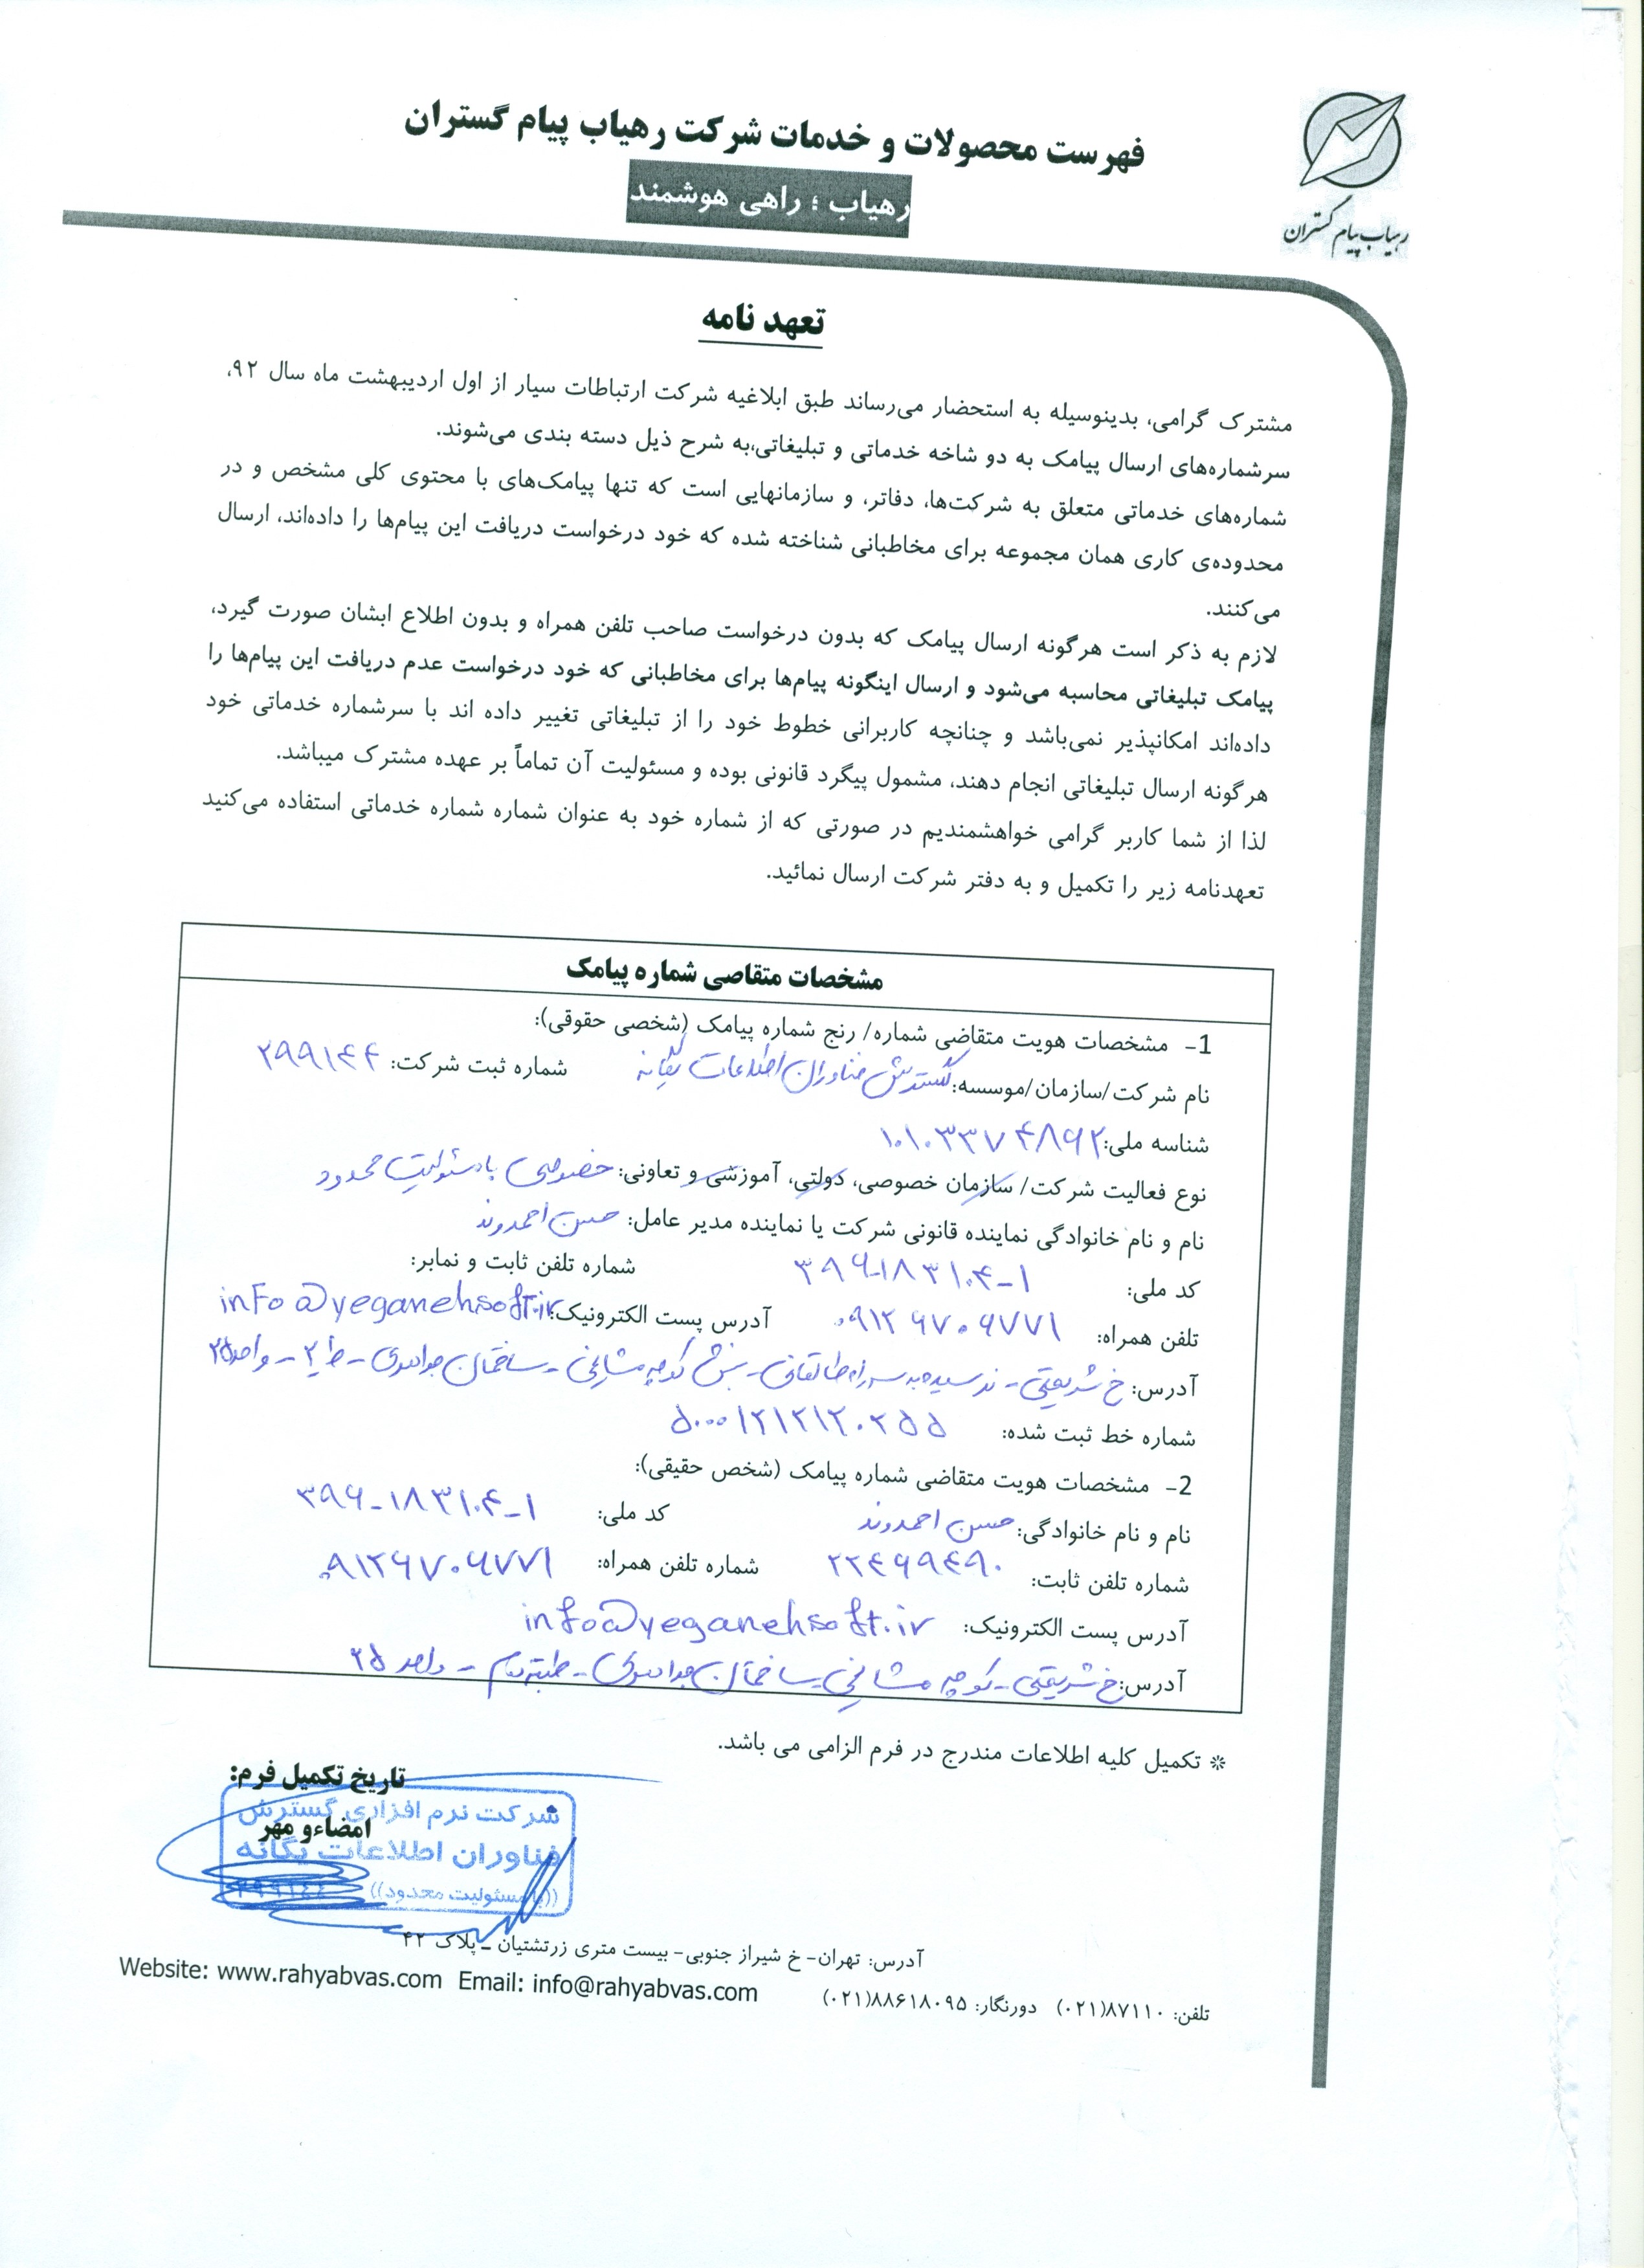 فهرست محصولات و خدمات شرکت رهیاب پیام گستران
رهیاب ؛ راهی هوشمند
رهیاب پیام گستران
تعهد نامه
مشترک گرامی، بدینوسیله به استحضار می‌رساند طبق ابلاغیه شرکت ارتباطات سیار از اول اردیبهشت ماه سال ۹۲،
سرشماره‌های ارسال پیامک به دو شاخه خدماتی و تبلیغاتی،به شرح ذیل دسته بندی می‌شوند.
شماره‌های خدماتی متعلق به شرکت‌ها، دفاتر، و سازمانهایی است که تنها پیامک‌های با محتوی کلی مشخص و در
محدوده‌ی کاری همان مجموعه برای مخاطبانی شناخته شده که خود درخواست دریافت این پیام‌ها را داده‌اند، ارسال
می‌کنند.
لازم به ذکر است هرگونه ارسال پیامک که بدون درخواست صاحب تلفن همراه و بدون اطلاع ایشان صورت گیرد،
پیامک تبلیغاتی محاسبه می‌شود و ارسال اینگونه پیام‌ها برای مخاطبانی که خود درخواست عدم دریافت این پیام‌ها را
داده‌اند امکانپذیر نمی‌باشد و چنانچه کاربرانی خطوط خود را از تبلیغاتی تغییر داده اند با سرشماره خدماتی خود
هرگونه ارسال تبلیغاتی انجام دهند، مشمول پیگرد قانونی بوده و مسئولیت آن تماماً بر عهده مشترک میباشد.
لذا از شما کاربر گرامی خواهشمندیم در صورتی که از شماره خود به عنوان شماره شماره خدماتی استفاده می‌کنید
تعهدنامه زیر را تکمیل و به دفتر شرکت ارسال نمائید.
مشخصات متقاضی شماره پیامک
1- مشخصات هویت متقاضی شماره/ رنج شماره پیامک (شخصی حقوقی):
نام شرکت/سازمان/موسسه: گسترش فناوران اطلاعات یگانه شماره ثبت شرکت: ۲۹۹۱۴۴
شناسه ملی: ۱۰۱۰۳۳۷۴۸۹۲
نوع فعالیت شرکت/ سازمان خصوصی، دولتی، آموزشی و تعاونی: خصوصی با مسئولیت محدود
نام و نام خانوادگی نماینده قانونی شرکت یا نماینده مدیر عامل: حسن احمدوند
کد ملی: ۳۹۶-۱۸۳۱۰۴-۱ شماره تلفن ثابت و نمابر:
تلفن همراه: ۰۹۱۲۶۷۰۶۷۷۱ آدرس پست الکترونیک: info@yeganehsoft.ir
آدرس: خ شریعتی - نرسیده به سه راه طالقانی - نبش کوچه مشایخی - ساختمان جواهری - ط ۲ - واحد ۲۵
شماره خط ثبت شده: ۵۰۰۰۱۲۱۲۱۲۰۲۵۵
2- مشخصات هویت متقاضی شماره پیامک (شخص حقیقی):
نام و نام خانوادگی: حسن احمدوند کد ملی: ۳۹۶-۱۸۳۱۰۴-۱
شماره تلفن ثابت: ۲۲۴۶۹۴۹۰ شماره تلفن همراه: ۰۹۱۲۶۷۰۶۷۷۱
آدرس پست الکترونیک: info@yeganehsoft.ir
آدرس: خ شریعتی - کوچه مشایخی - ساختمان جواهری - طبقه دوم - واحد ۲۵
* تکمیل کلیه اطلاعات مندرج در فرم الزامی می باشد.
تاریخ تکمیل فرم:
امضاء و مهر
شرکت نرم افزاری گسترش
فناوران اطلاعات یگانه
((با مسئولیت محدود)) ۲۹۹۱۴۴
آدرس: تهران- خ شیراز جنوبی- بیست متری زرتشتیان - پلاک ۴۲
تلفن: ۸۷۱۱۰(۰۲۱) دورنگار: ۸۸۶۱۸۰۹۵(۰۲۱) Website: www.rahyabvas.com Email: info@rahyabvas.com